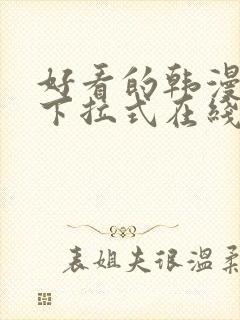 好看的韩漫
下拉式在线
表姐夫很温柔